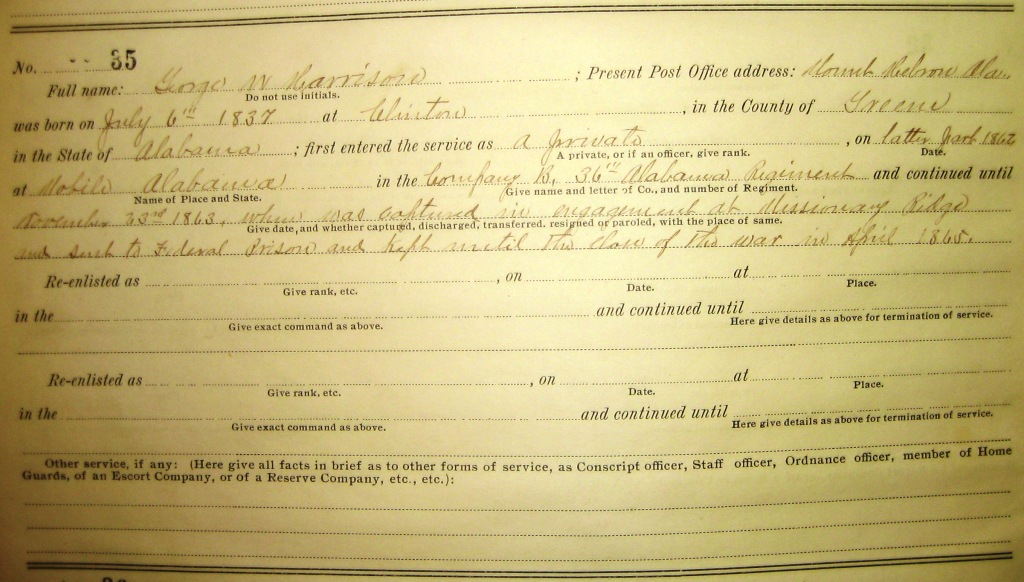 No. 35
Full name: George W Harrison ; Present Post Office address: Mount Hebron Ala.
Do not use initials.
was born on July 6th 1837 at Clinton , in the County of Greene
in the State of Alabama ; first entered the service as a private , on latter part 1862
A private, or if an officer, give rank. Date.
at Mobile Alabama in the Company B, 36th Alabama Regiment and continued until
Name of Place and State. Give name and letter of Co., and number of Regiment.
November 23rd 1863, when was captured in engagement at Missionary Ridge
Give date, and whether captured, discharged, transferred. resigned or paroled, with the place of same.
and sent to Federal Prison and kept until the close of the war in April 1865.
Re-enlisted as , on at
Give rank, etc. Date. Place.
in the and continued until
Give exact command as above. Here give details as above for termination of service.
Re-enlisted as , on at
Give rank, etc. Date. Place.
in the and continued until
Give exact command as above. Here give details as above for termination of service.
Other service, if any: (Here give all facts in brief as to other forms of service, as Conscript officer, Staff officer, Ordnance officer, member of Home
Guards, of an Escort Company, or of a Reserve Company, etc., etc.):